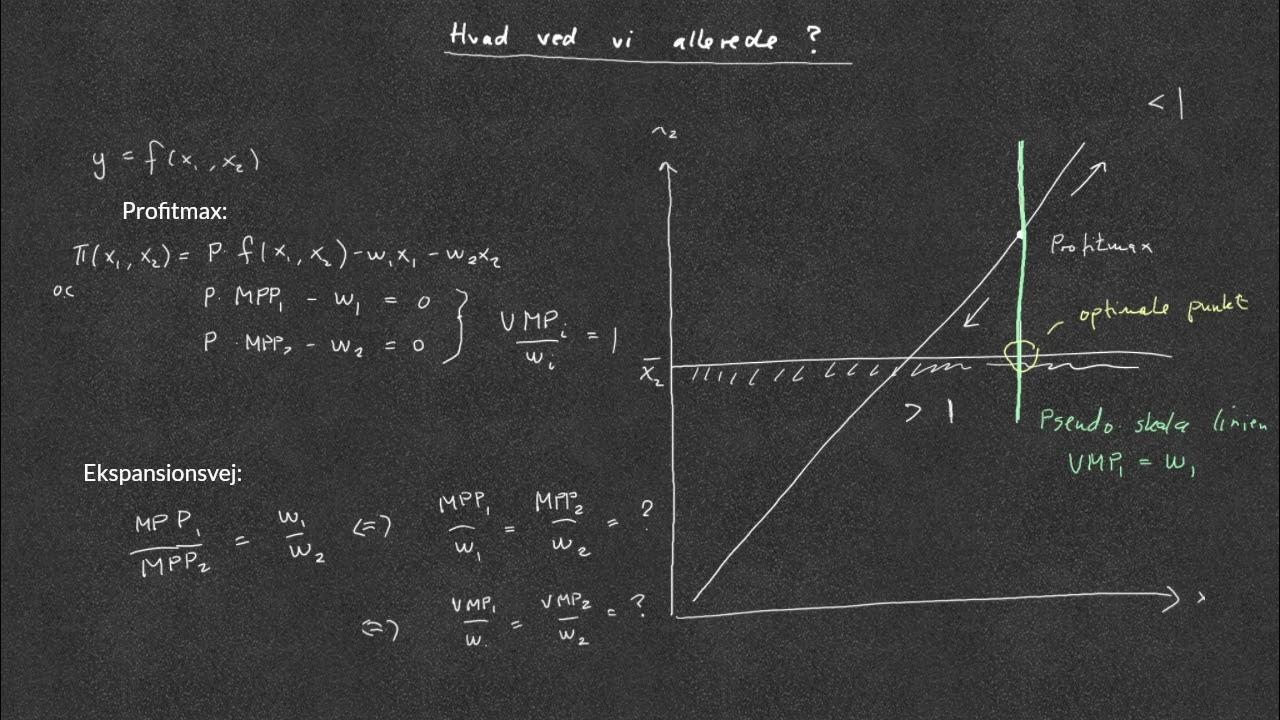 Hvad ved vi allerede ?
y = f(x₁, x₂)
Profitmax:
π(x₁, x₂) = P· f(x₁, x₂) - w₁x₁ - w₂x₂
P· MPP₁ - w₁ = 0
P · MPP₂ - w₂ = 0
VMPᵢ / wᵢ = 1
Ekspansionsvej:
MPP₁ / MPP₂ = w₁ / w₂ <=> MPP₁ / w₁ = MPP₂ / w₂ = ?
<=> VMP₁ / w. = VMP₂ / w₂ = ?
< 1
Profitmax
optimale punkt
x̄₂
> 1
Pseudo skala linien
VMP₁ = w₁